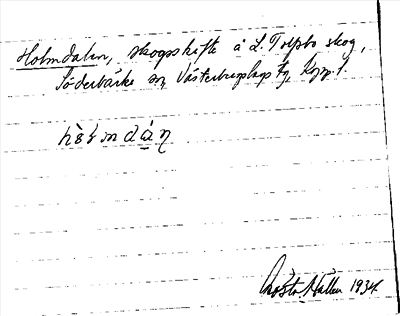 Holmdalen, skogsskifte å L. Tolsbo skog,
Söderbärke sn, Västerbergslags tg, Kopp. l.
Gösta Hallen 1934.